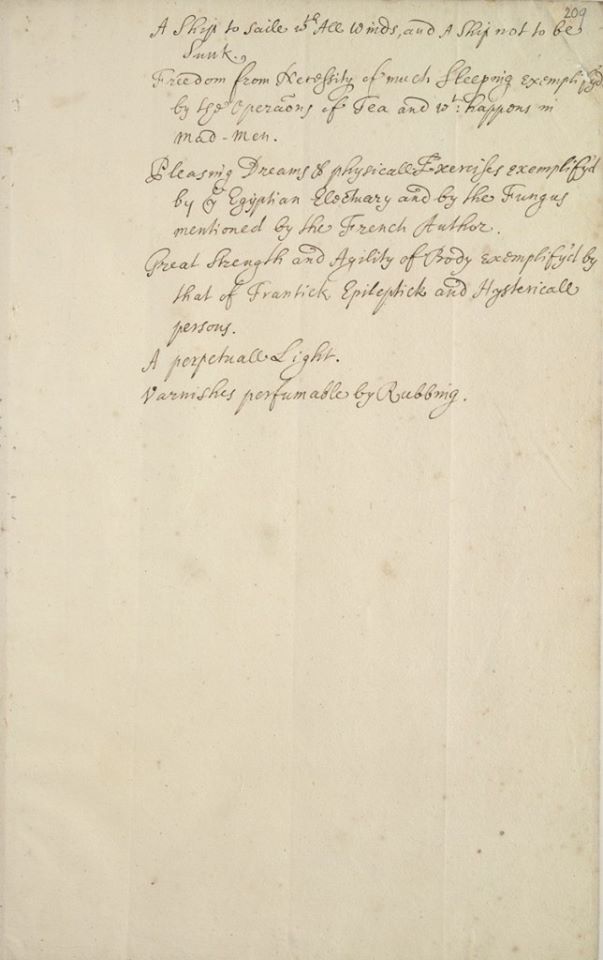 209
A Ship to saile wth All Winds, and A Ship not to be
Sunk.
Freedom from Necessity of much Sleeping exemplify'd
by the Operaōns of Tea and wt: happens in
Mad-Men.
Pleasing Dreams & physicall Exercises exemplify'd
by ye Egyptian Electuary and by the Fungus
mentioned by the French Author.
Great Strength and Agility of Body exemplify'd by
that of Frantick Epileptick and Hystericall
persons.
A perpetuall Light.
Varnishes perfumable by Rubbing.